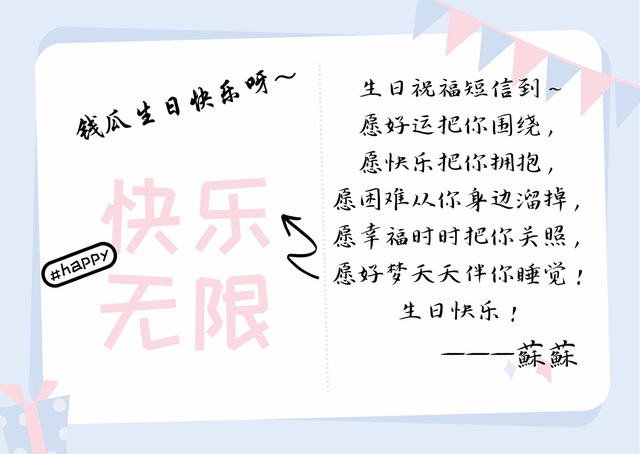 钱瓜生日快乐呀～
快乐
无限
#happy
生日祝福短信到～
愿好运把你围绕，
愿快乐把你拥抱，
愿困难从你身边溜掉，
愿幸福时时把你关照，
愿好梦天天伴你睡觉！
生日快乐！
———蘇蘇